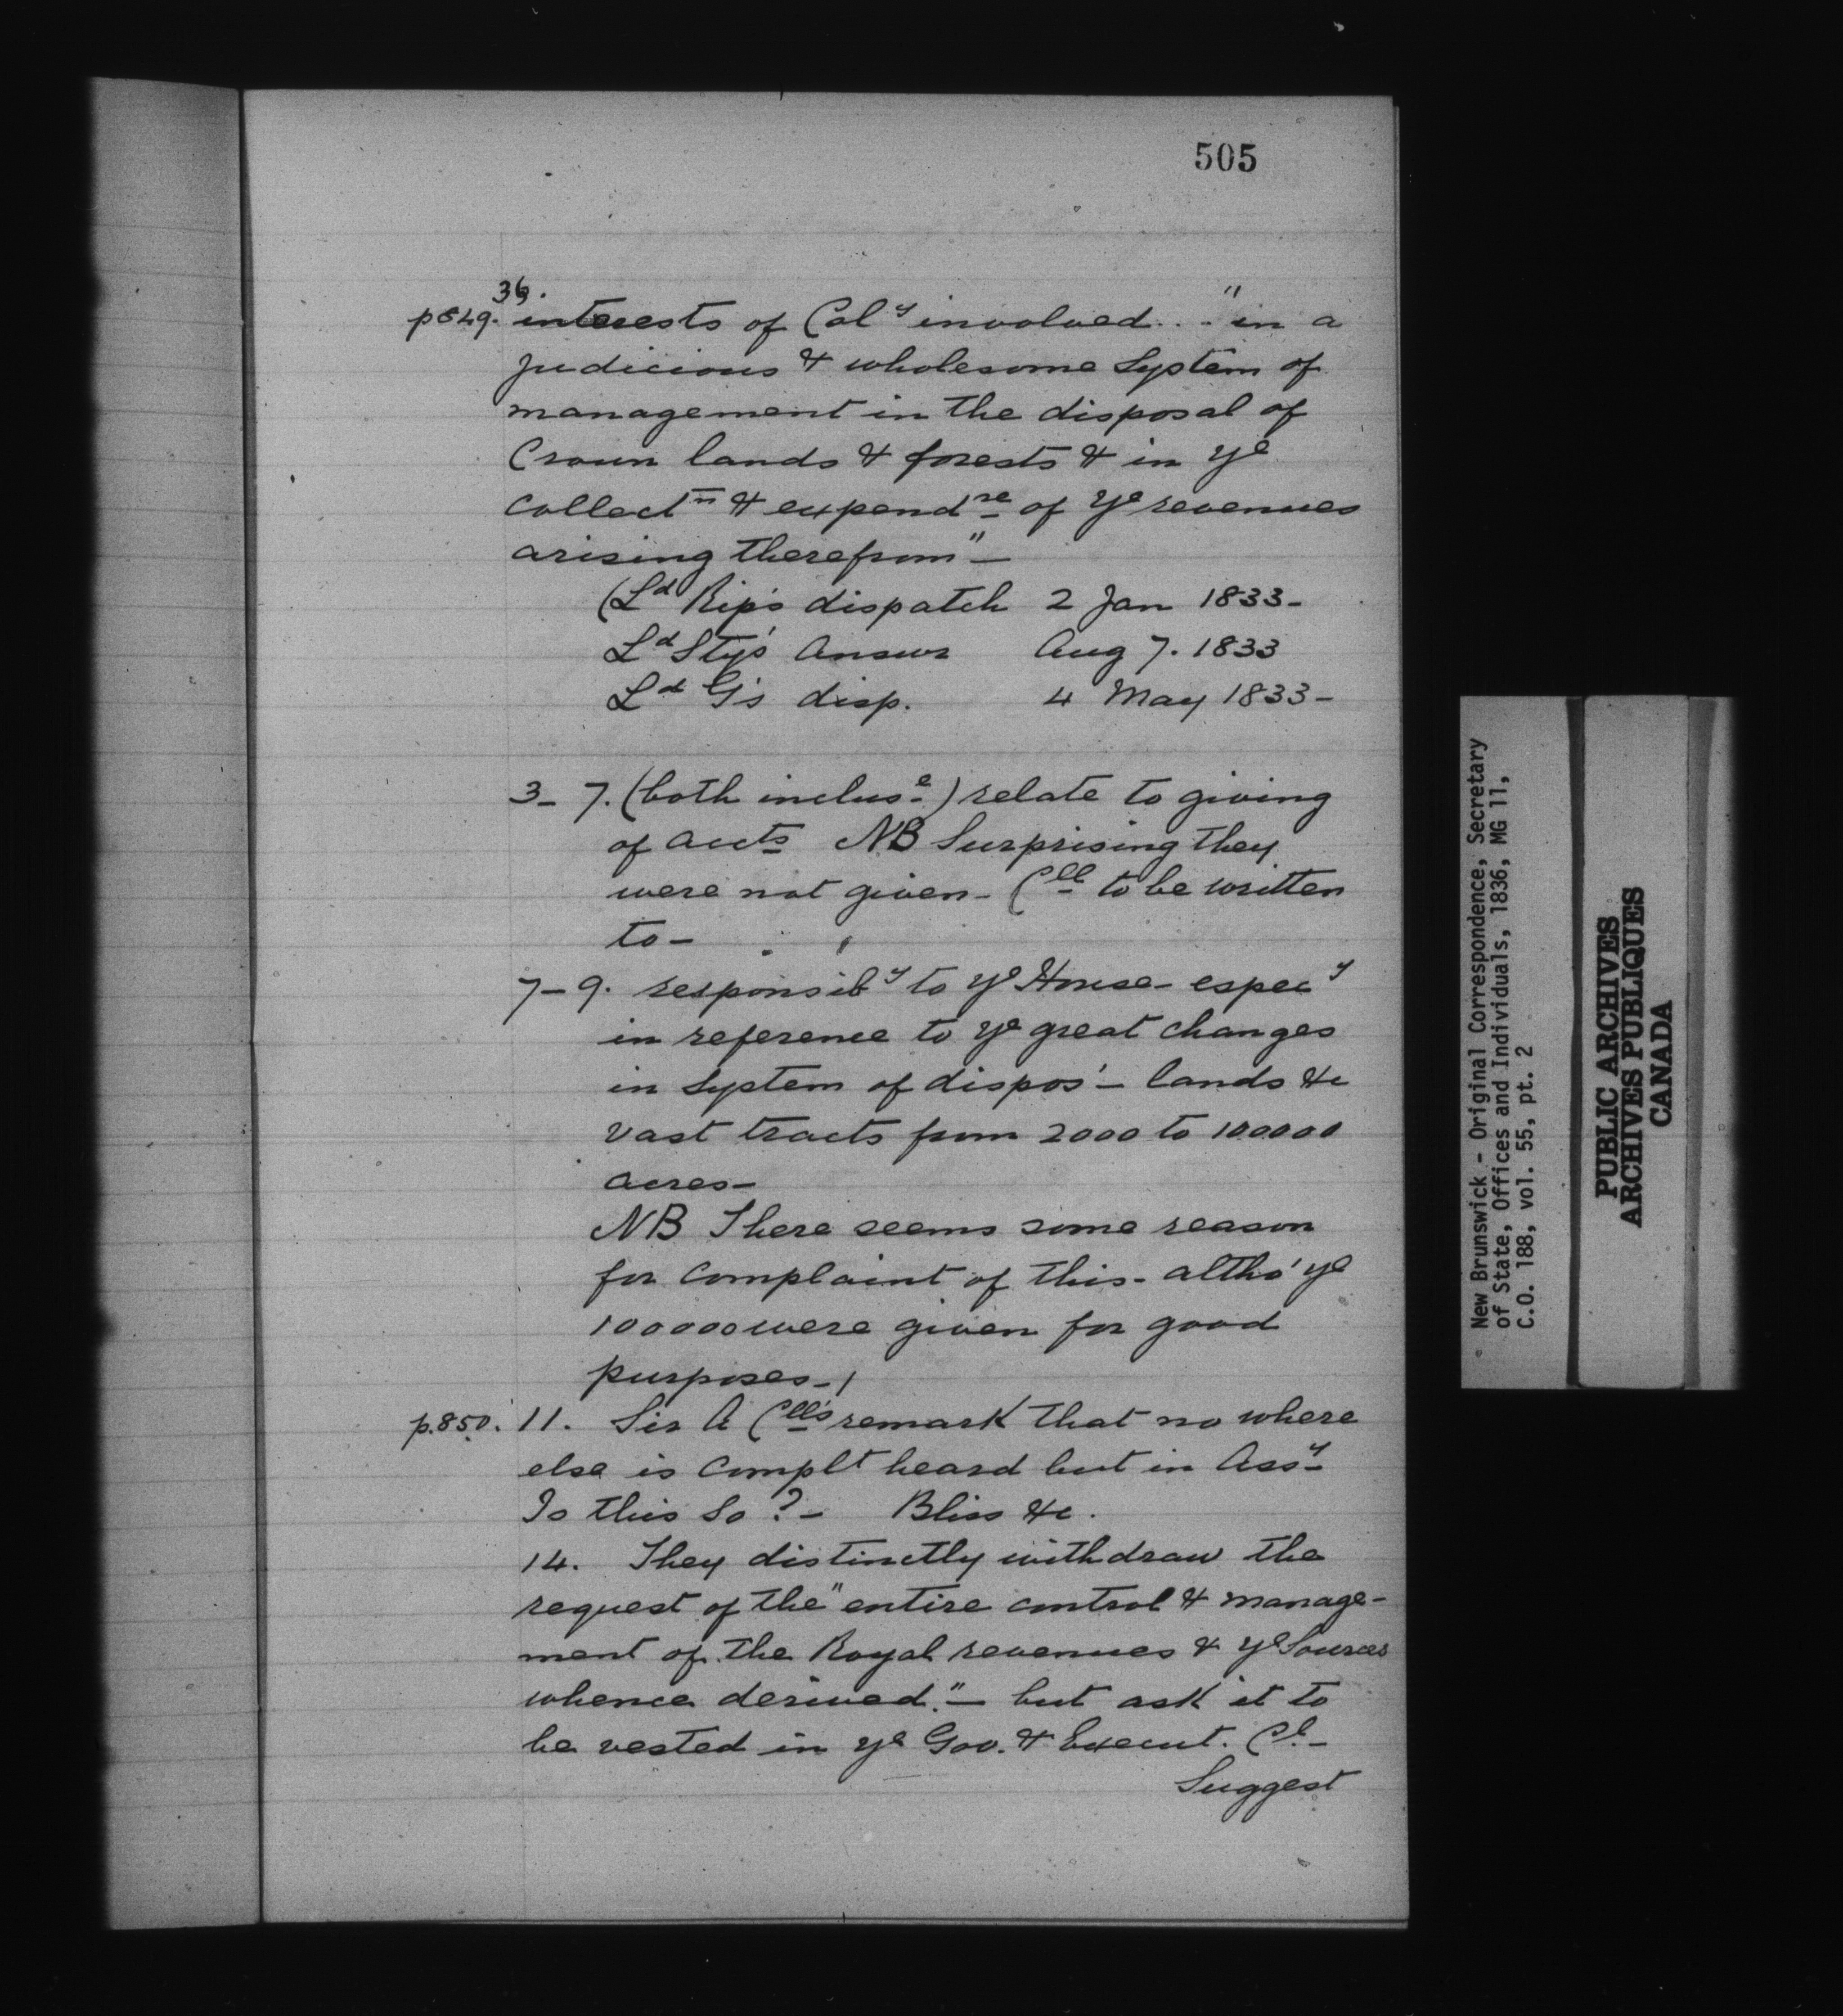 505
36.
p849. interests of Col^y involved... "in a
judicious & wholesome System of
management in the disposal of
Crown lands & forests & in y^e
collect^n & expend^re of y^e revenues
arising therefrom" —
(L^d Rip's dispatch 2 Jan 1833 -
L^d Sty's Answr Aug 7. 1833
L^d G's disp. 4 May 1833 -
3 - 7. (both inclus^e) relate to giving
of accts NB Surprising they
were not given - C^ll to be written
to -
7 - 9. responsib^y to y^e House - espec^y
in reference to y^e great changes
in system of dispos' - lands &c
vast tracts from 2000 to 100000
acres -
NB There seems some reason
for complaint of this - altho' y^e
100000 were given for good
purposes - /
p.850. 11. Sir A C^ll's remark that no where
else is complt heard but in Ass^y -
Is this so? - Bliss &c.
14. They distinctly withdraw the
request of the "entire control & manage-
ment of the Royal revenues & y^e Sources
whence derived." - but ask it to
be vested in y^e Gov. & Execut. C^l. -
Suggest
New Brunswick - Original Correspondence, Secretary
of State, Offices and Individuals, 1836, MG 11,
C.O. 188, vol. 55, pt. 2
PUBLIC ARCHIVES
ARCHIVES PUBLIQUES
CANADA